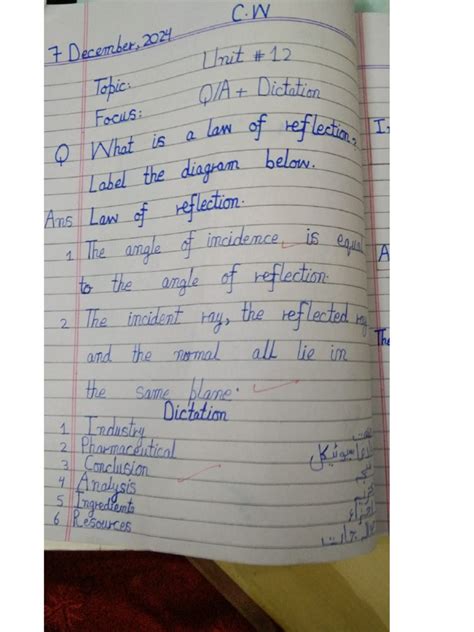 C.W
7 December, 2024
Topic: Unit # 12
Focus: Q/A + Dictation
Q What is a law of reflection.
Label the diagram below.
Ans Law of reflection.
1 The angle of incidence is equal
to the angle of reflection.
2 The incident ray, the reflected ray
and the normal all lie in
the same blane.
Dictation
1 Industry
2 Pharmaceutical
3 Conclusion
4 Analysis
5 Ingredients
6 Resources